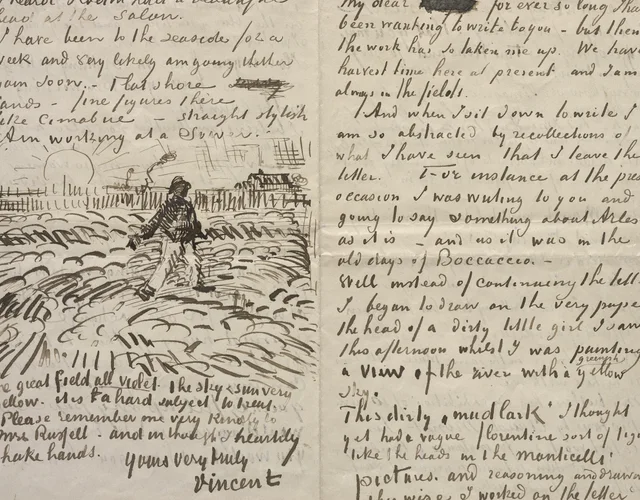 heard Rodin had a beautiful
head at the Salon.
I have been to the seaside for a
week and very likely am going thither
again soon. - Flat shore
sands - fine figures there
like Cimabue - straight stylish
Am working at a Sower.
the great field all violet the sky & sun very
yellow. it is a hard subject to treat.
Please remember me very kindly to
mrs Russell - and in thought I heartily
shake hands.
Yours very truly
Vincent
My dear for ever so long I ha
been wanting to write to you - but then
the work has so taken me up. We have
harvest time here at present and I am
always in the fields.
And when I sit down to write I
am so abstracted by recollections of
what I have seen that I leave the
letter. For instance at the pres
occasion I was writing to you and
going to say something about Arles
as it is - and as it was in the
old days of Boccaccio. -
Well instead of continuing the lett
I began to draw on the very pape
the head of a dirty little girl I saw
this afternoon whilst I was painting
a view of the river with a greenish yellow
sky.
This dirty „mudlark" I thought
yet had a vague florentine sort of fig
like the heads in the monticelli
pictures. and reasoning and draw
this wise I worked on the letter